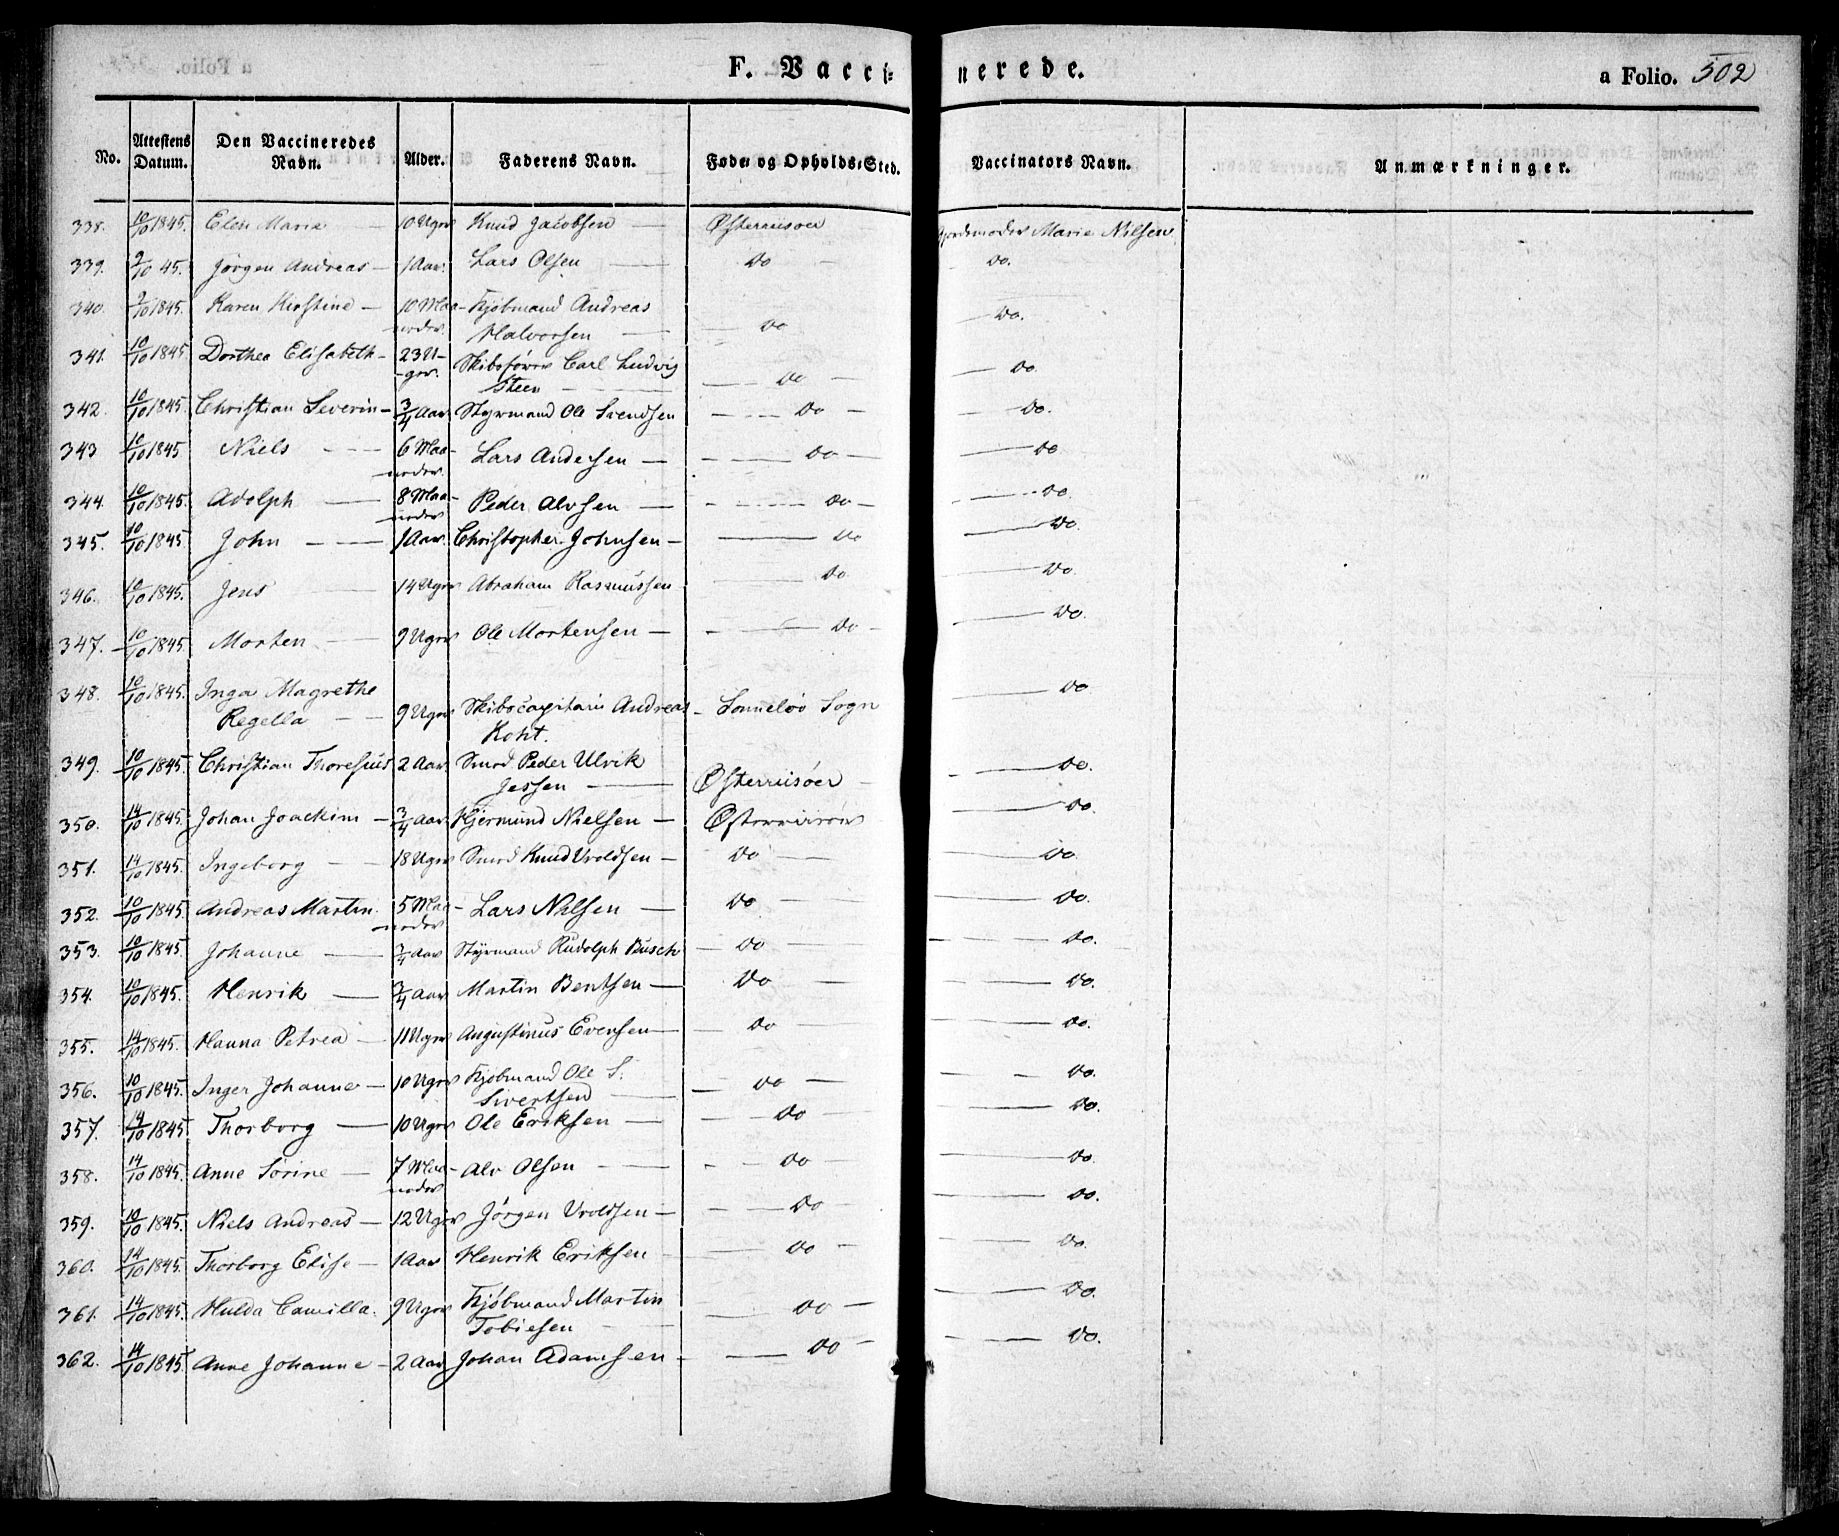 F. Vaccinerede. a Folio. 502
No. Attestens Datum. Den Vaccineredes Navn. Alder. Faderens Navn. Føde- og Opholds-Sted. Vaccinators Navn. Anmærkninger.
338. 10/10 1845. Elen Marie — 10 Uger Knud Jacobsen — Østerriisøer Gjordemoder Marie Nilsen
339. 9/10 45. Jørgen Andreas — 1 Aar. Lars Olsen — Do — Do.
340. 9/10 1845. Karen Kirstine — 10 Maa- Kjøbmand Andreas
neder. Halvorsen — Do — Do.
341. 10/10 1845 Dorthea Elisabeth — 23 U- Skibsfører Carl Ludvig
ger. Steen — Do — Do.
342. 10/10 1845. Christian Severin — 3/4 Aar Styrmand Ole Svendsen — Do — Do.
343 10/10 1845 Niels — 6 Maa- Lars Andersen — Do — Do
neder.
344. 10/10 1845. Adolph — 8 Maa- Peder Alvsen — Do — Do.
neder
345. 10/10 1845 John — 1 Aar. Christopher Johnsen — Do — Do.
346. 10/10 1845. Jens 14 Uger Abraham Rasmussen — Do — Do.
347. 10/10 1845 Morten — 9 Uger Ole Mortensen — Do — Do.
348. 10/10 1845. Inga Magrethe
Regella — 9 Uger Skibscapitain Andreas — Sønneløv Sogn — Do
Koht.
349. 10/10 1845. Christian Thoresius 2 Aar. Smed Peder Ulrik
Jessen — Østerriisøer — Do.
350. 14/10 1845. Johan Joachim — 3/4 Aar Hjermund Nielsen — Østerriisøer — Do.
351. 14/10 1845. Ingeborg — 18 Uger Smed Knud Vroldsen — Do — Do.
352. 10/10 1845. Andreas Martin. 5 Maa- Lars Nilsen — Do — Do.
neder
353. 10/10 1845. Johanne — 3/4 Aar Styrmand Rudolph Busch — Do — Do.
354. 10/10 1845. Henrik — 3/4 Aar Martin Bentsen — Do — Do.
355. 14/10 1845. Hanna Petrea — 11 Uger Augustinus Evensen — Do — Do.
356. 10/10 1845. Inger Johanne — 10 Uger Kjøbmand Ole S.
Sivertsen — Do — Do.
357. 14/10 1845 Thorborg — 10 Uger Ole Eriksen — Do — Do.
358. 14/10 1845. Anne Sørine — 7 Maa- Alv Olsen — Do — Do.
neder
359. 10/10 1845. Niels Andreas — 12 Uger Jørgen Vroldsen — Do — Do.
360. 14/10 1845. Thorborg Elise — 1 Aar Henrik Eriksen — Do — Do.
361. 14/10 1845. Hulda Camilla. 9 Uger Kjøbmand Martin
Tobiesen — Do — Do.
362. 14/10 1845 Anne Johanne — 2 Aar Johan Adamsen — Do — Do.